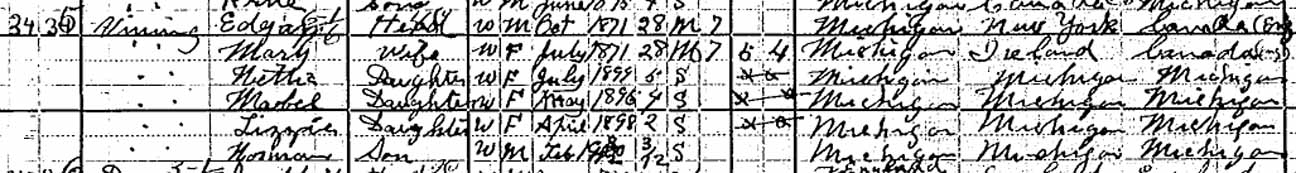 Son W M June 4 S Michigan Canada Michigan
34 35 Vining Edgar E Head W M Oct 1871 28 M 7 Michigan New York Canada (Eng
" " Mary Wife W F July 1871 28 M 7 5 4 Michigan Ireland Canada
" " Nettie Daughter W F July 1894 5 S Michigan Michigan Michigan
" " Mabel Daughter W F May 1896 4 S Michigan Michigan Michigan
" " Lizzie Daughter W F April 1898 2 S Michigan Michigan Michigan
" " Norman Son W M Feb 1900 3/12 S Michigan Michigan Michigan